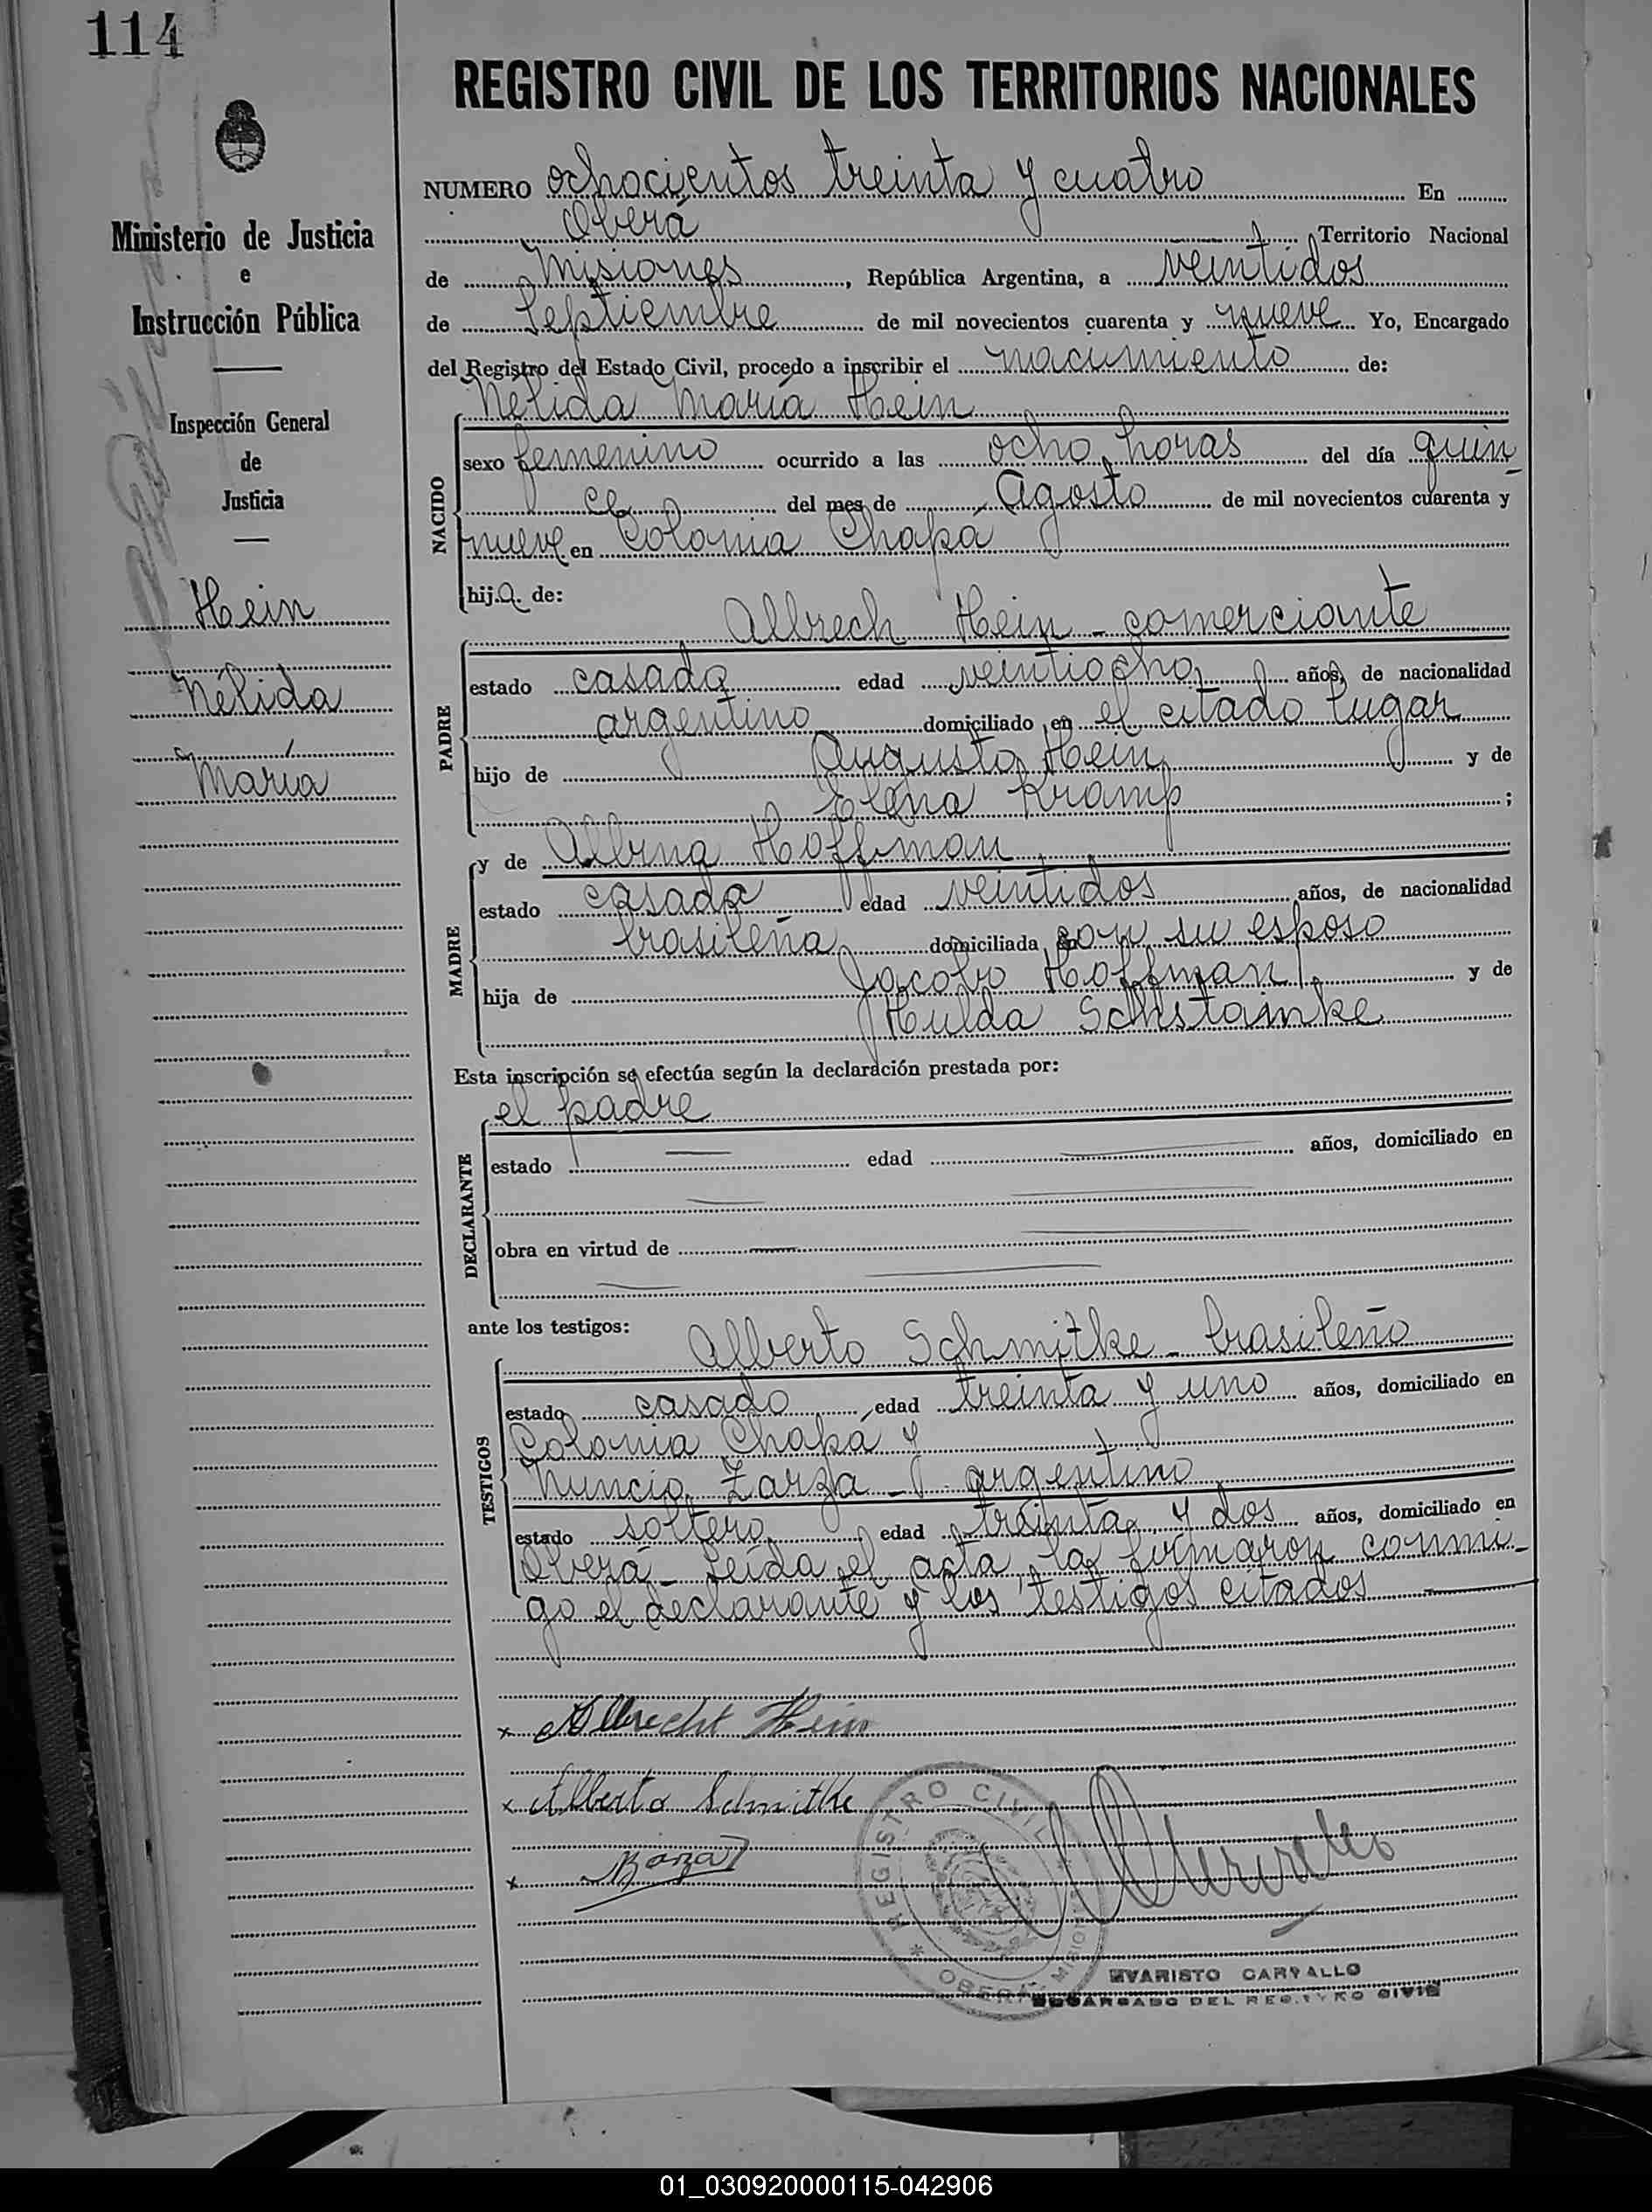 114
REGISTRO CIVIL DE LOS TERRITORIOS NACIONALES
Ministerio de Justicia
e
Instrucción Pública
Inspección General
de
Justicia
Hein
Nélida
María
NUMERO ochocientos treinta y cuatro En
Oberá Territorio Nacional
de Misiones, República Argentina, a veintidos
de Septiembre de mil novecientos cuarenta y nueve Yo, Encargado
del Registro del Estado Civil, procedo a inscribir el nacimiento de:
NACIDO
Nélida María Hein
sexo femenino ocurrido a las ocho horas del día quin
ce del mes de Agosto de mil novecientos cuarenta y
nueve en Colonia Chapá
hija de:
PADRE
Albrech Hein - comerciante
estado casado edad veintiocho años, de nacionalidad
argentino domiciliado en el citado lugar
hijo de Augusto Hein y de
Elena Kramp;
MADRE
y de Albina Hoffman
estado casada edad veintidos años, de nacionalidad
brasileña domiciliada con su esposo
hija de Jacobo Hoffman y de
Hulda Schstainke
Esta inscripción se efectúa según la declaración prestada por:
DECLARANTE
el padre
estado — edad — años, domiciliado en
obra en virtud de —
ante los testigos:
TESTIGOS
Alberto Schmitke - brasileño
estado casado edad treinta y uno años, domiciliado en
Colonia Chapá y
Nuncio Zarza - argentino
estado soltero edad treinta y dos años, domiciliado en
Oberá - Leída el acta, la firmaron conmi-
go el declarante y los testigos citados
x Albrecht Hein
x Alberto Schmitke
x
REGISTRO CIVIL
* OBERÁ - MISIONES *
EVARISTO CARVALLO
ENCARGADO DEL REGISTRO CIVIL
01_030920000115-042906